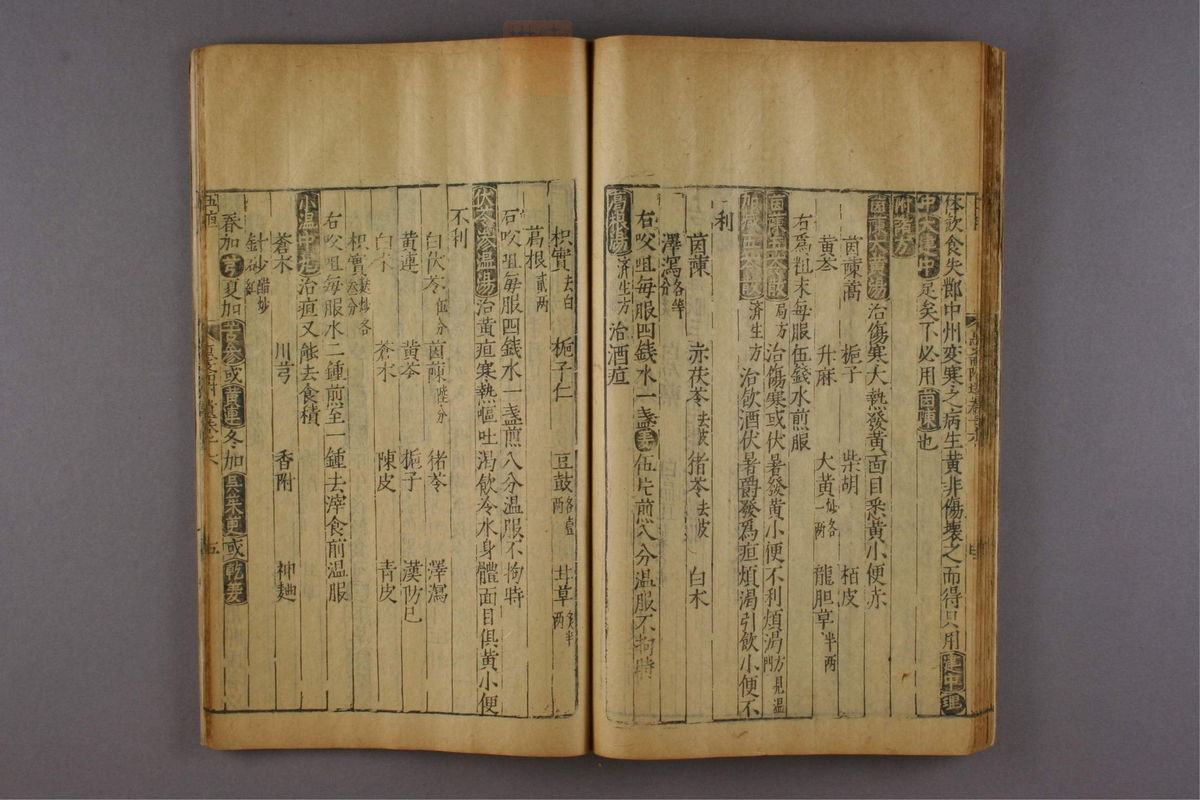 体飲食失郷中州変寒之病生黄非傷壊之而得只用建中理
中大建中足矣不必用茵陳也
附諸方
茵陳大黄湯治傷寒大熱發黄面目悉黄小便赤
茵陳蒿 梔子 柴胡 栢皮
黄芩 升麻 大黄炒各一兩 龍胆草半兩
右爲粗末每服伍錢水煎服
茵陳五苓散局方治傷寒或伏暑發黄小便不利煩渇方見温門
加减五苓散済生方治飲酒伏暑爵發爲疸煩渇引飲小便不
利
茵蔯 赤茯苓去皮 猪苓去皮 白朮
澤瀉各等分
右㕮咀每服四錢水一盞姜伍片煎八分温服不拘時
葛根湯済生方 治酒疸
枳實去白 梔子仁 豆鼓各壹兩 甘草炙半兩
葛根貳兩
右㕮咀每服四錢水一盞煎八分温服不拘時
茯苓參温湯治黄疸寒熱嘔吐渇飲冷水身體面目俱黄小便
不利
白伏苓伍分 茵蔯陸分 猪苓 澤瀉
黄連 黄芩 梔子 漢防已
白朮 蒼朮 陳皮 青皮
枳實麩炒各貳分
右㕮咀每服水二鍾煎至一鍾去滓食前温服
小温中丸治疸又能去食積
蒼朮 川芎 香附 神麯
針砂醋炒紅
春加芎夏加苦參或黄連冬加吳茱萸或乾姜
五疸
五